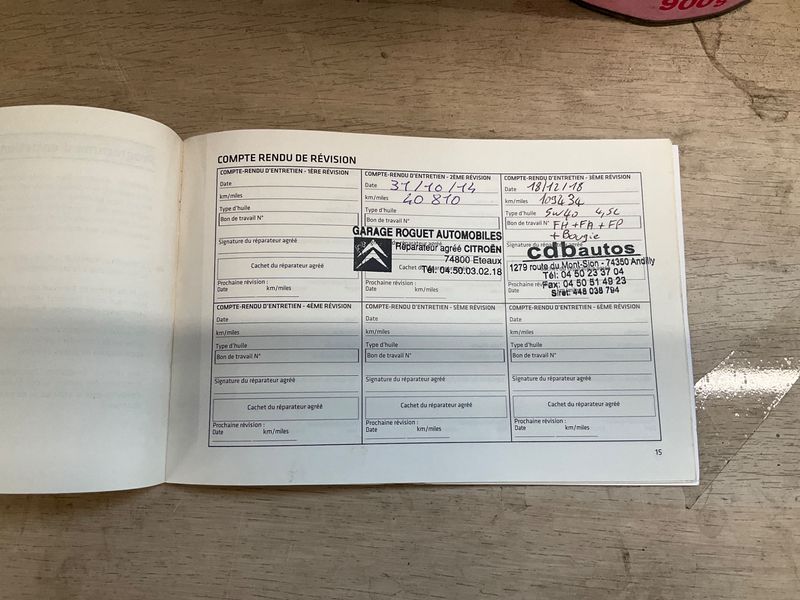 900g
COMPTE RENDU DE RÉVISION
COMPTE-RENDU D'ENTRETIEN - 1ÈRE RÉVISION
Date
km/miles
Type d'huile
Bon de travail N°
Signature du réparateur agréé
Cachet du réparateur agréé
Prochaine révision :
Date km/miles
COMPTE-RENDU D'ENTRETIEN - 2ÈME RÉVISION
Date 31/10/14
km/miles 40 810
Type d'huile
Bon de travail N°
GARAGE ROGUET AUTOMOBILES
Réparateur agréé CITROËN
74800 Eteaux
Tél. 04.50.03.02.18
Prochaine révision :
Date km/miles
COMPTE-RENDU D'ENTRETIEN - 3ÈME RÉVISION
Date 18/12/18
km/miles 109434
Type d'huile 5w40 4,5L
Bon de travail N° FH+FA+FP
+ Bougie
cdbautos
1279 route du Mont-Sion - 74350 Andilly
Tél: 04 50 23 37 04
Fax: 04 50 51 49 23
Siret: 448 038 794
COMPTE-RENDU D'ENTRETIEN - 4ÈME RÉVISION
Date
km/miles
Type d'huile
Bon de travail N°
Signature du réparateur agréé
Cachet du réparateur agréé
Prochaine révision :
Date km/miles
COMPTE-RENDU D'ENTRETIEN - 5ÈME RÉVISION
Date
km/miles
Type d'huile
Bon de travail N°
Signature du réparateur agréé
Cachet du réparateur agréé
Prochaine révision :
Date km/miles
COMPTE-RENDU D'ENTRETIEN - 6ÈME RÉVISION
Date
km/miles
Type d'huile
Bon de travail N°
Signature du réparateur agréé
Cachet du réparateur agréé
Prochaine révision :
Date km/miles
15